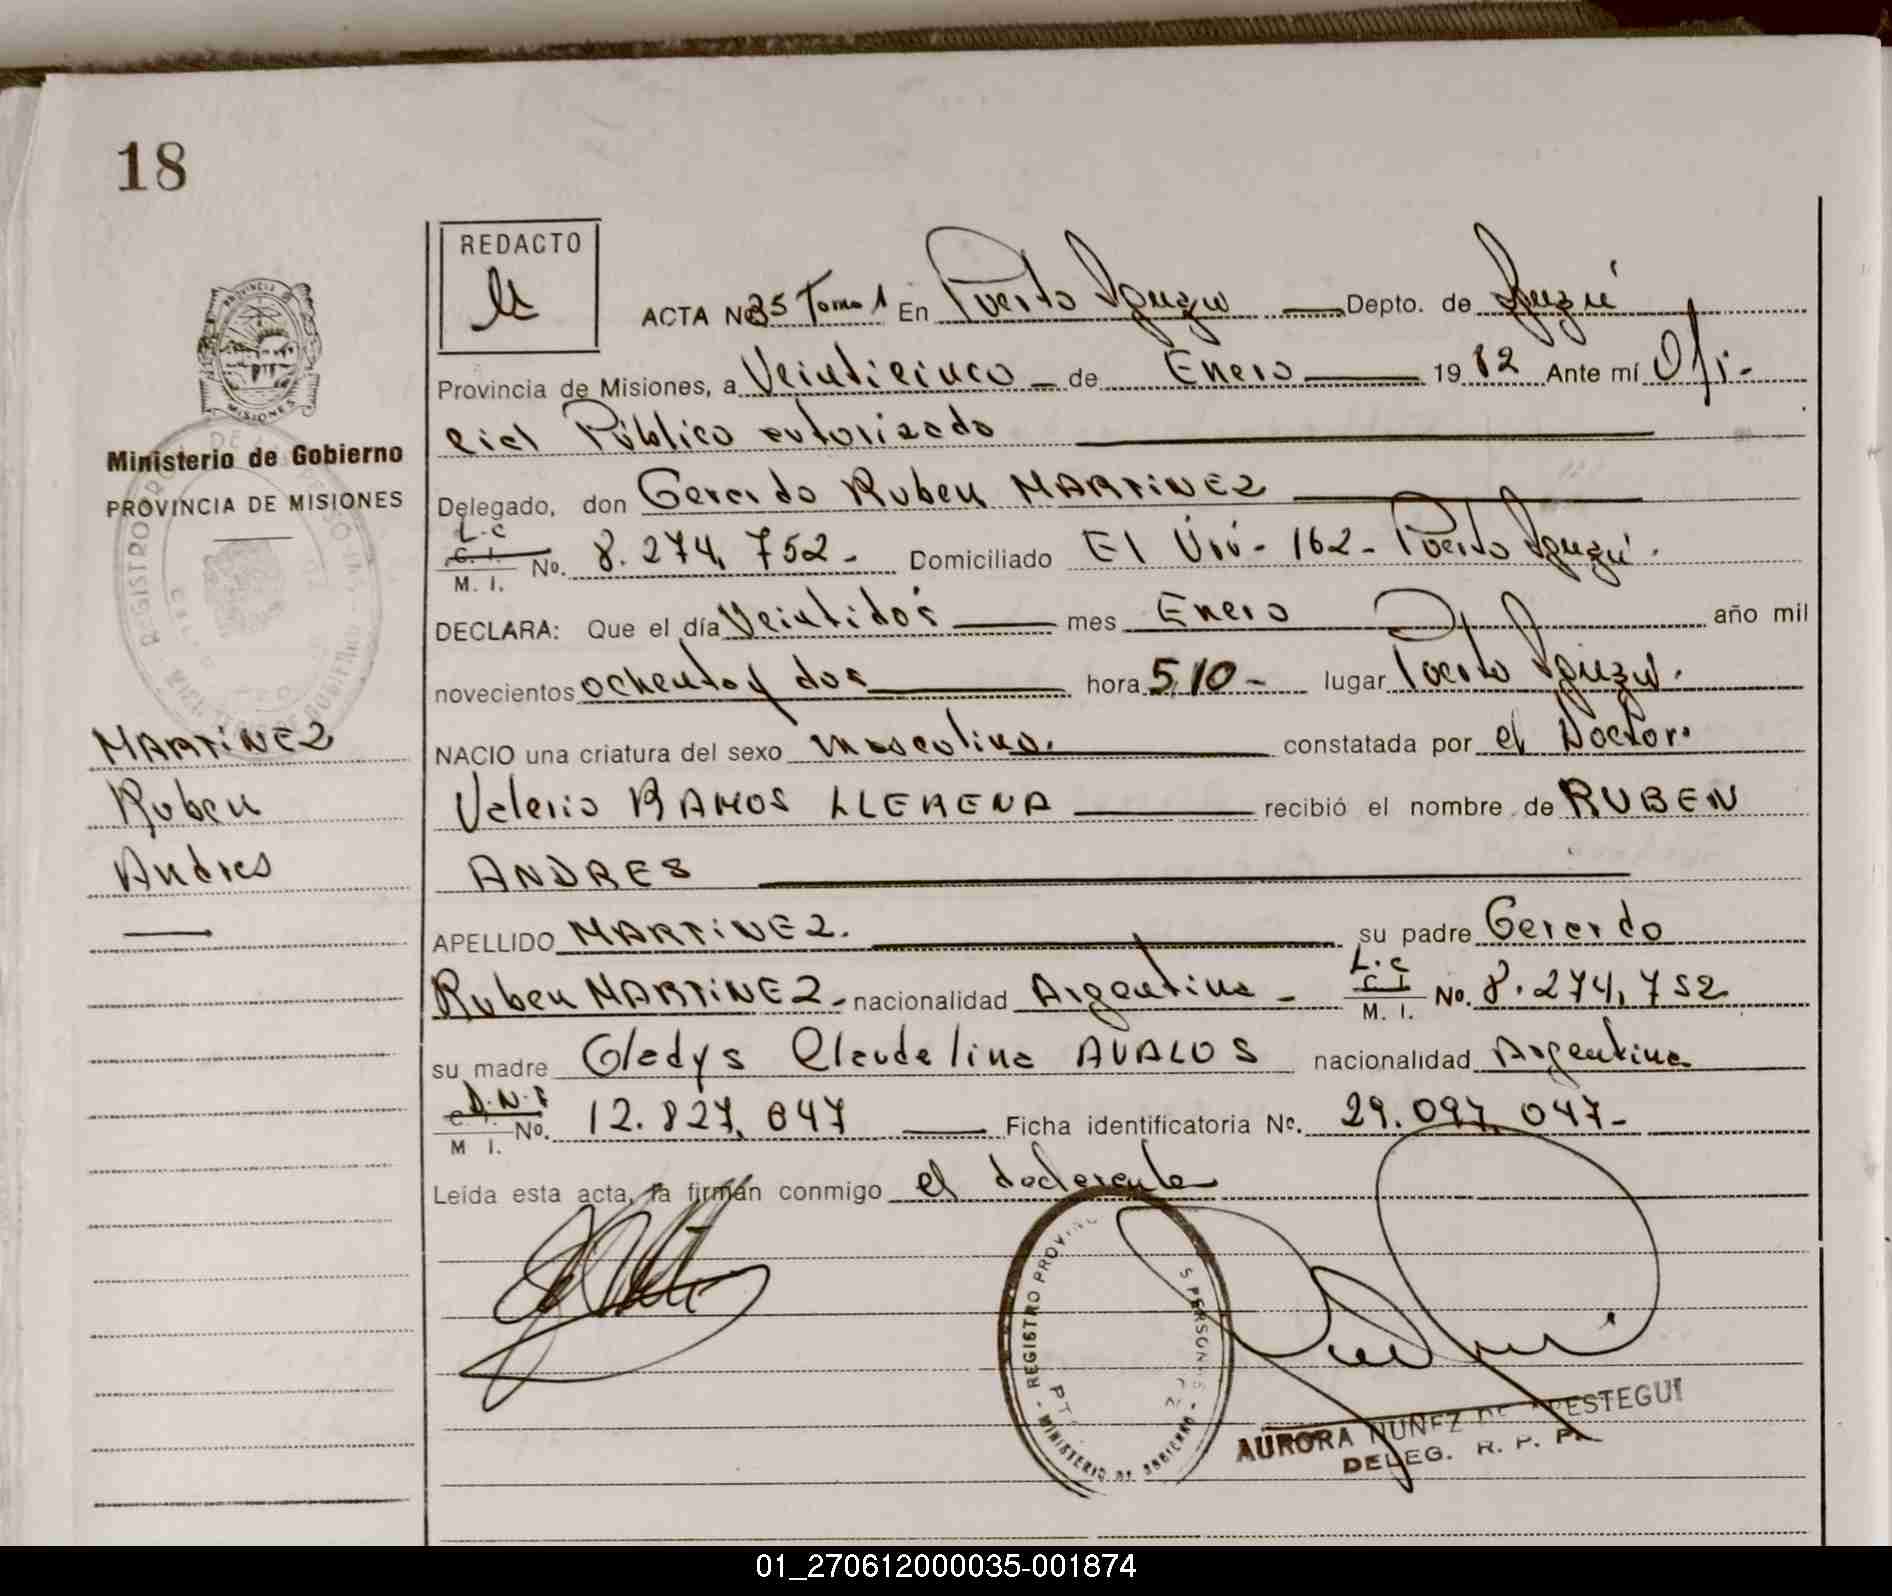 18
REDACTO
PROVINCIA
MISIONES
Ministerio de Gobierno
PROVINCIA DE MISIONES
MARTiNEZ
Ruben
Andres
ACTA Nº 35 Tomo 1 En Puerto Iguazu Depto. de Iguazú
Provincia de Misiones, a Veinticinco de Enero 19 82 Ante mí Ofi-
cial Público autorizado
Delegado, don Gerardo Ruben MARTiNEZ
L.C C. I. M. I. No. 8.274,752- Domiciliado El Urú- 162- Puerto Iguazú.
DECLARA: Que el día Veintidós mes Enero año mil
novecientos ochenta y dos hora 5,10- lugar Puerto Iguazú.
NACIO una criatura del sexo masculino. constatada por el Doctor.
Valerio RAMOS LLERENA recibió el nombre de RUBEN
ANDRES
APELLIDO MARTiNEZ. su padre Gerardo
Ruben MARTiNEZ- nacionalidad Argentina - L.C C. I. M. I. No. 8.274,752
su madre Gladys Claudelina AVALOS nacionalidad Argentina
D.N.I C. I. M I. No. 12.827,047 Ficha identificatoria No. 29.097,047-
Leída esta acta, la firman conmigo el declarante
REGISTRO PROVINC
MINISTERIO DE GOBIERNO
AURORA NUÑEZ DE
DELEG. R. P. P.
01_270612000035-001874